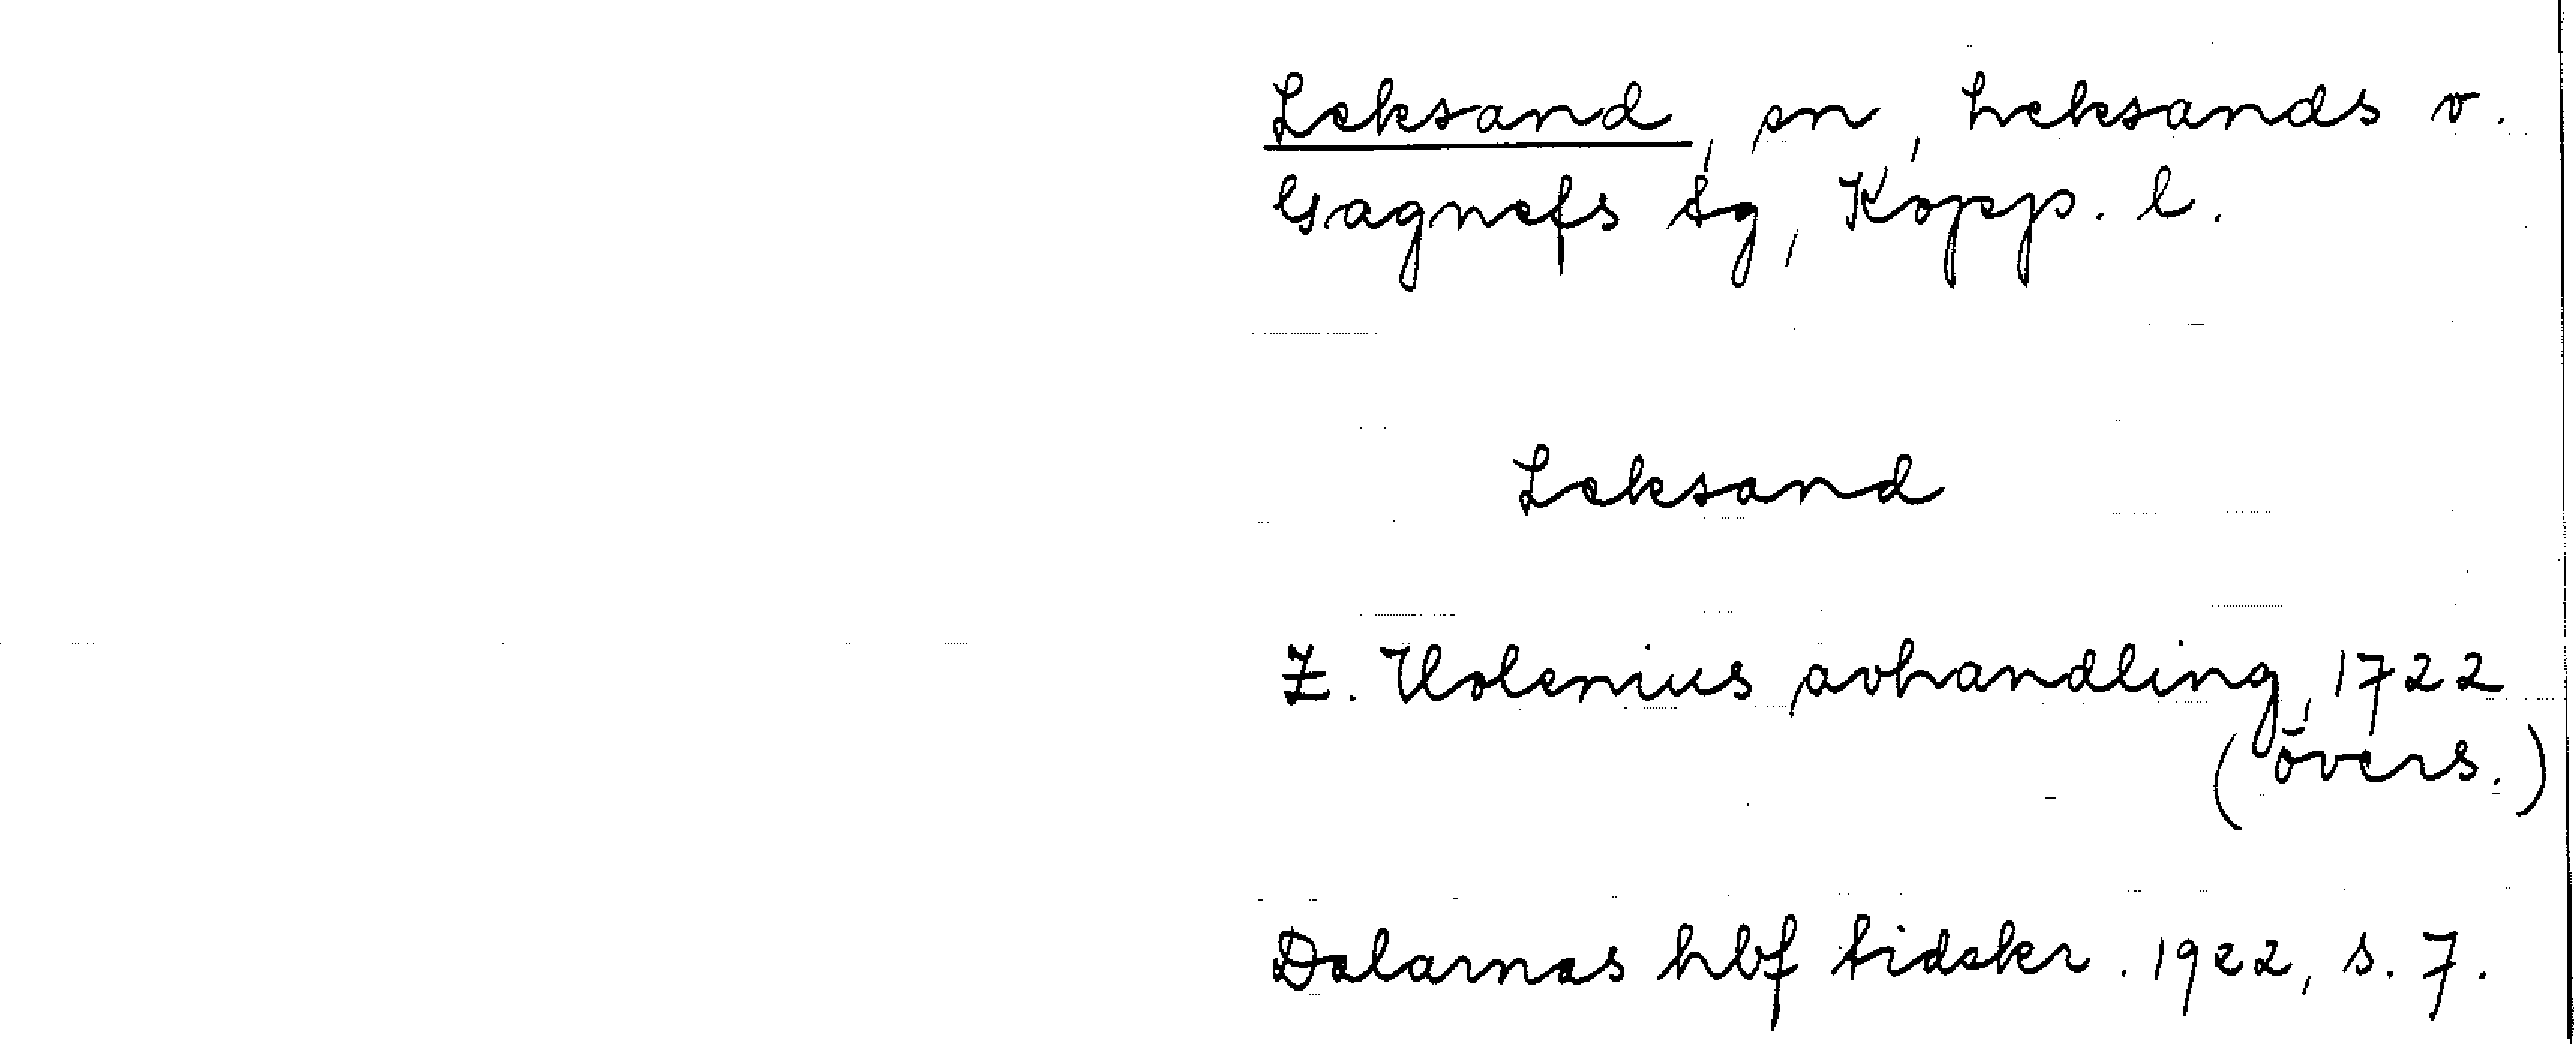 Leksand, sn, Leksands o.
Gagnefs tg, Kopp. l.
Leksand
Z. Holenius avhandling, 1722
(övers.)
Dalarnas hbf tidskr. 1922, s. 7.